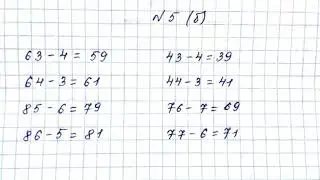 №5 (б)
63 - 4 = 59
64 - 3 = 61
85 - 6 = 79
86 - 5 = 81
43 - 4 = 39
44 - 3 = 41
76 - 7 = 69
77 - 6 = 71